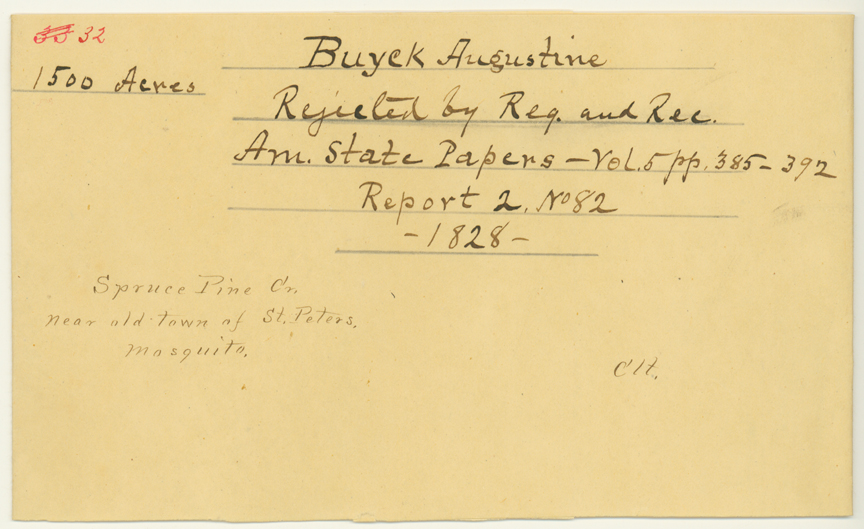 32
1500 Acres
Buyck Augustine
Rejected by Reg. and Rec.
Am. State Papers – Vol. 5 pp. 385 – 392
Report 2. No 82
- 1828 -
Spruce Pine Cr.
near old town of St. Peters,
Mosquito.